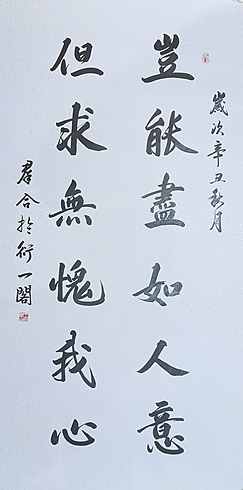 歲次辛丑秋月
豈能盡如人意
但求無愧我心
群合於衍一閣